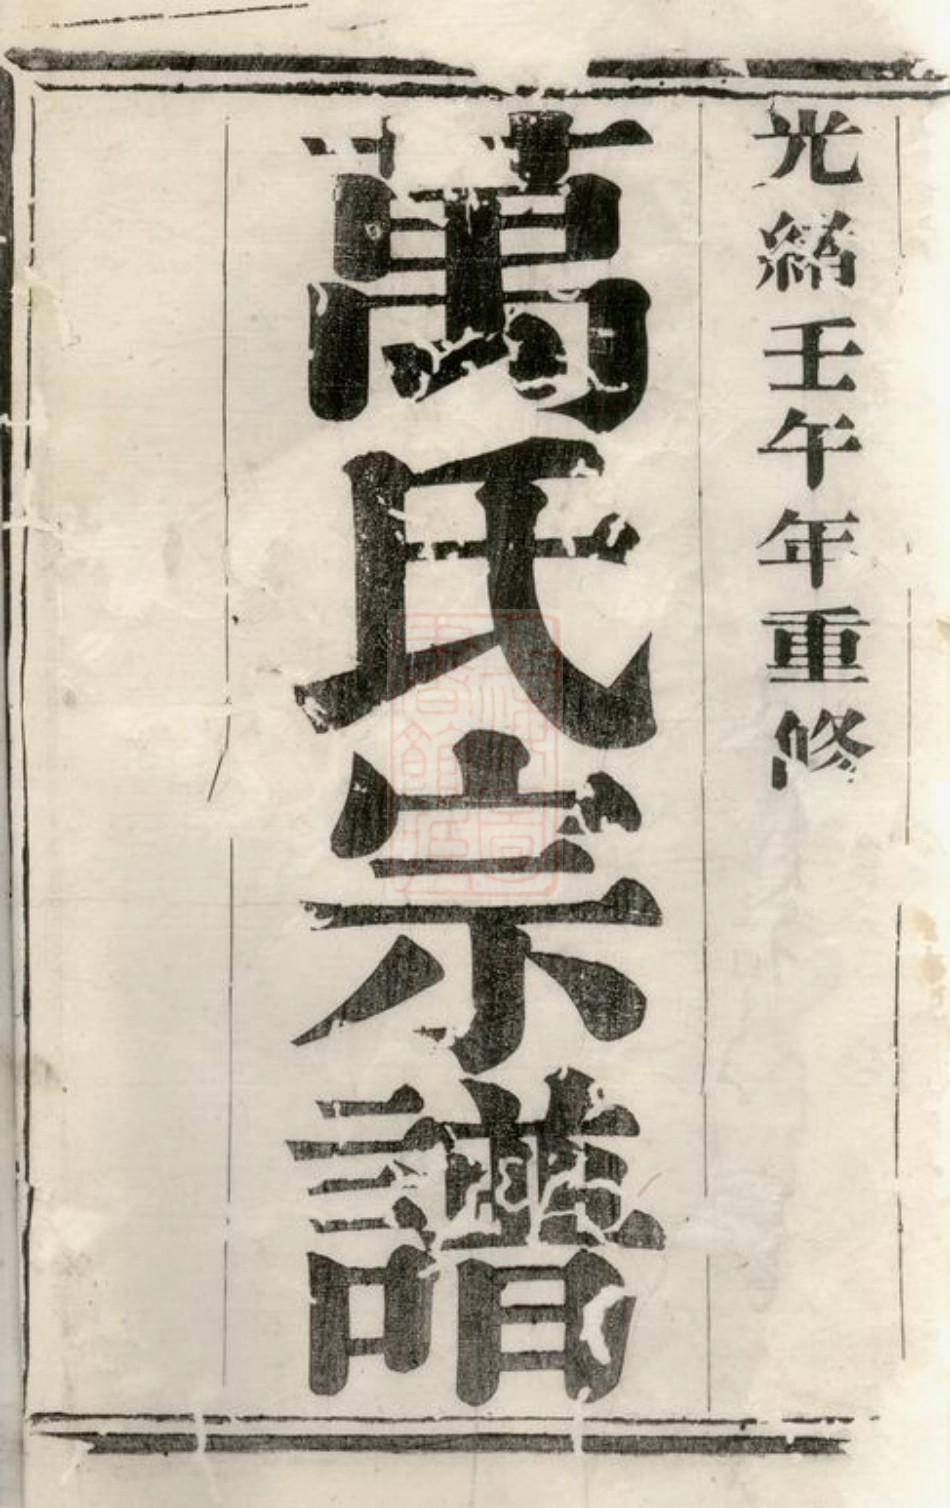 光緒壬午年重修
萬氏宗譜